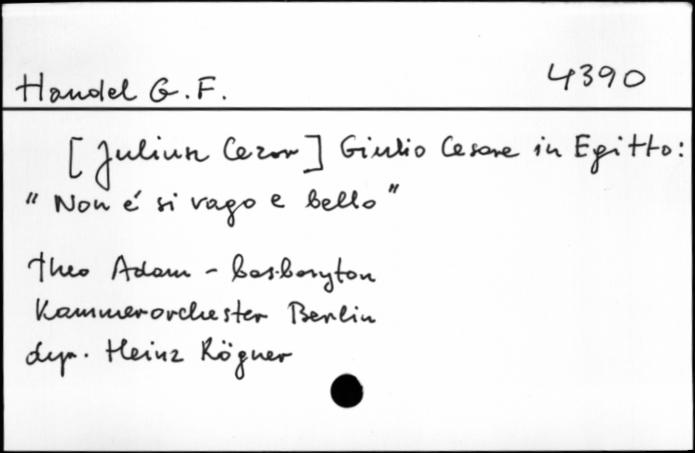 Handel G.F. 4390
[Juliusz Cezar] Giulio Cesare in Egitto:
"Non é si vago e bello"
Theo Adam - bas-baryton
Kammerorchester Berlin
dyr. Heinz Rögner